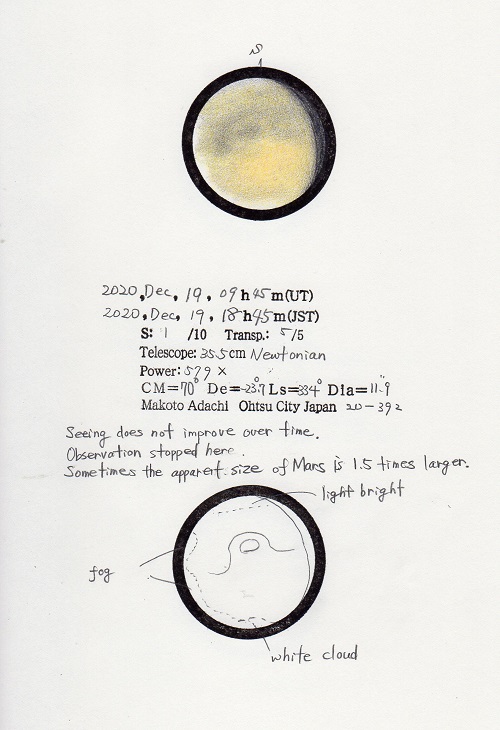 S
2020, Dec, 19, 09h45m(UT)
2020, Dec, 19, 18h45m(JST)
S: 1 /10 Transp.: 5/5
Telescope: 35.5cm Newtonian
Power: 579 ×
CM=70° De=-23.7° Ls=334° Dia=11.9"
Makoto Adachi Ohtsu City Japan 20-392
Seeing does not improve over time.
Observation stopped here.
Sometimes the apparent size of Mars is 1.5 times larger.
light bright
fog
white cloud